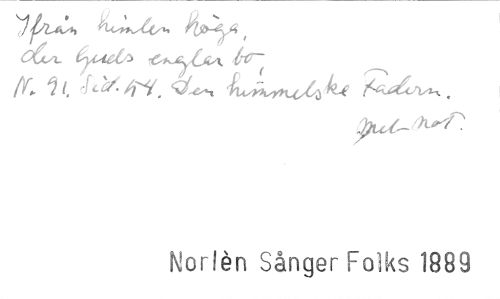 Ifrån himlen höga,
der Guds englar bo,
N. 91. Sid. 54. Den himmelske Fadern.
Mel. Not.
Norlèn Sånger Folks 1889